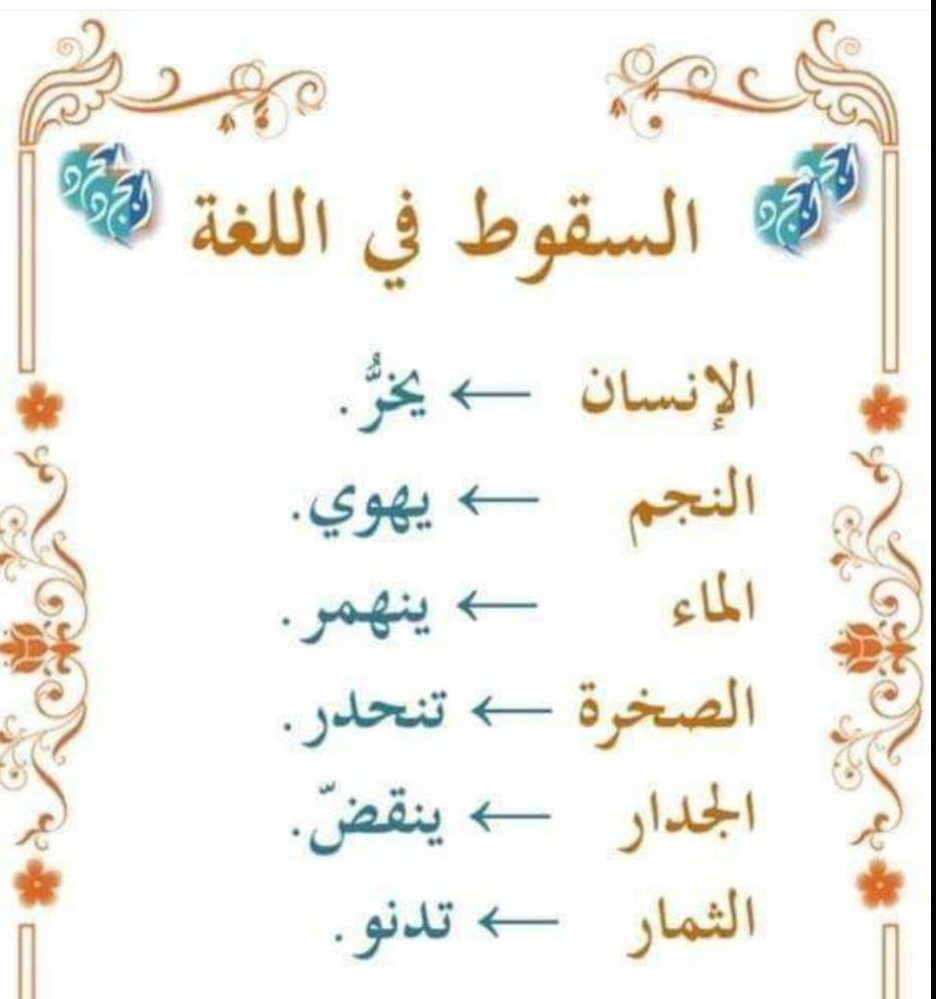 السقوط في اللغة
الإنسان ← يخرُّ.
النجم ← يهوي.
الماء ← ينهمر.
الصخرة ← تنحدر.
الجدار ← ينقضّ.
الثمار ← تدنو.